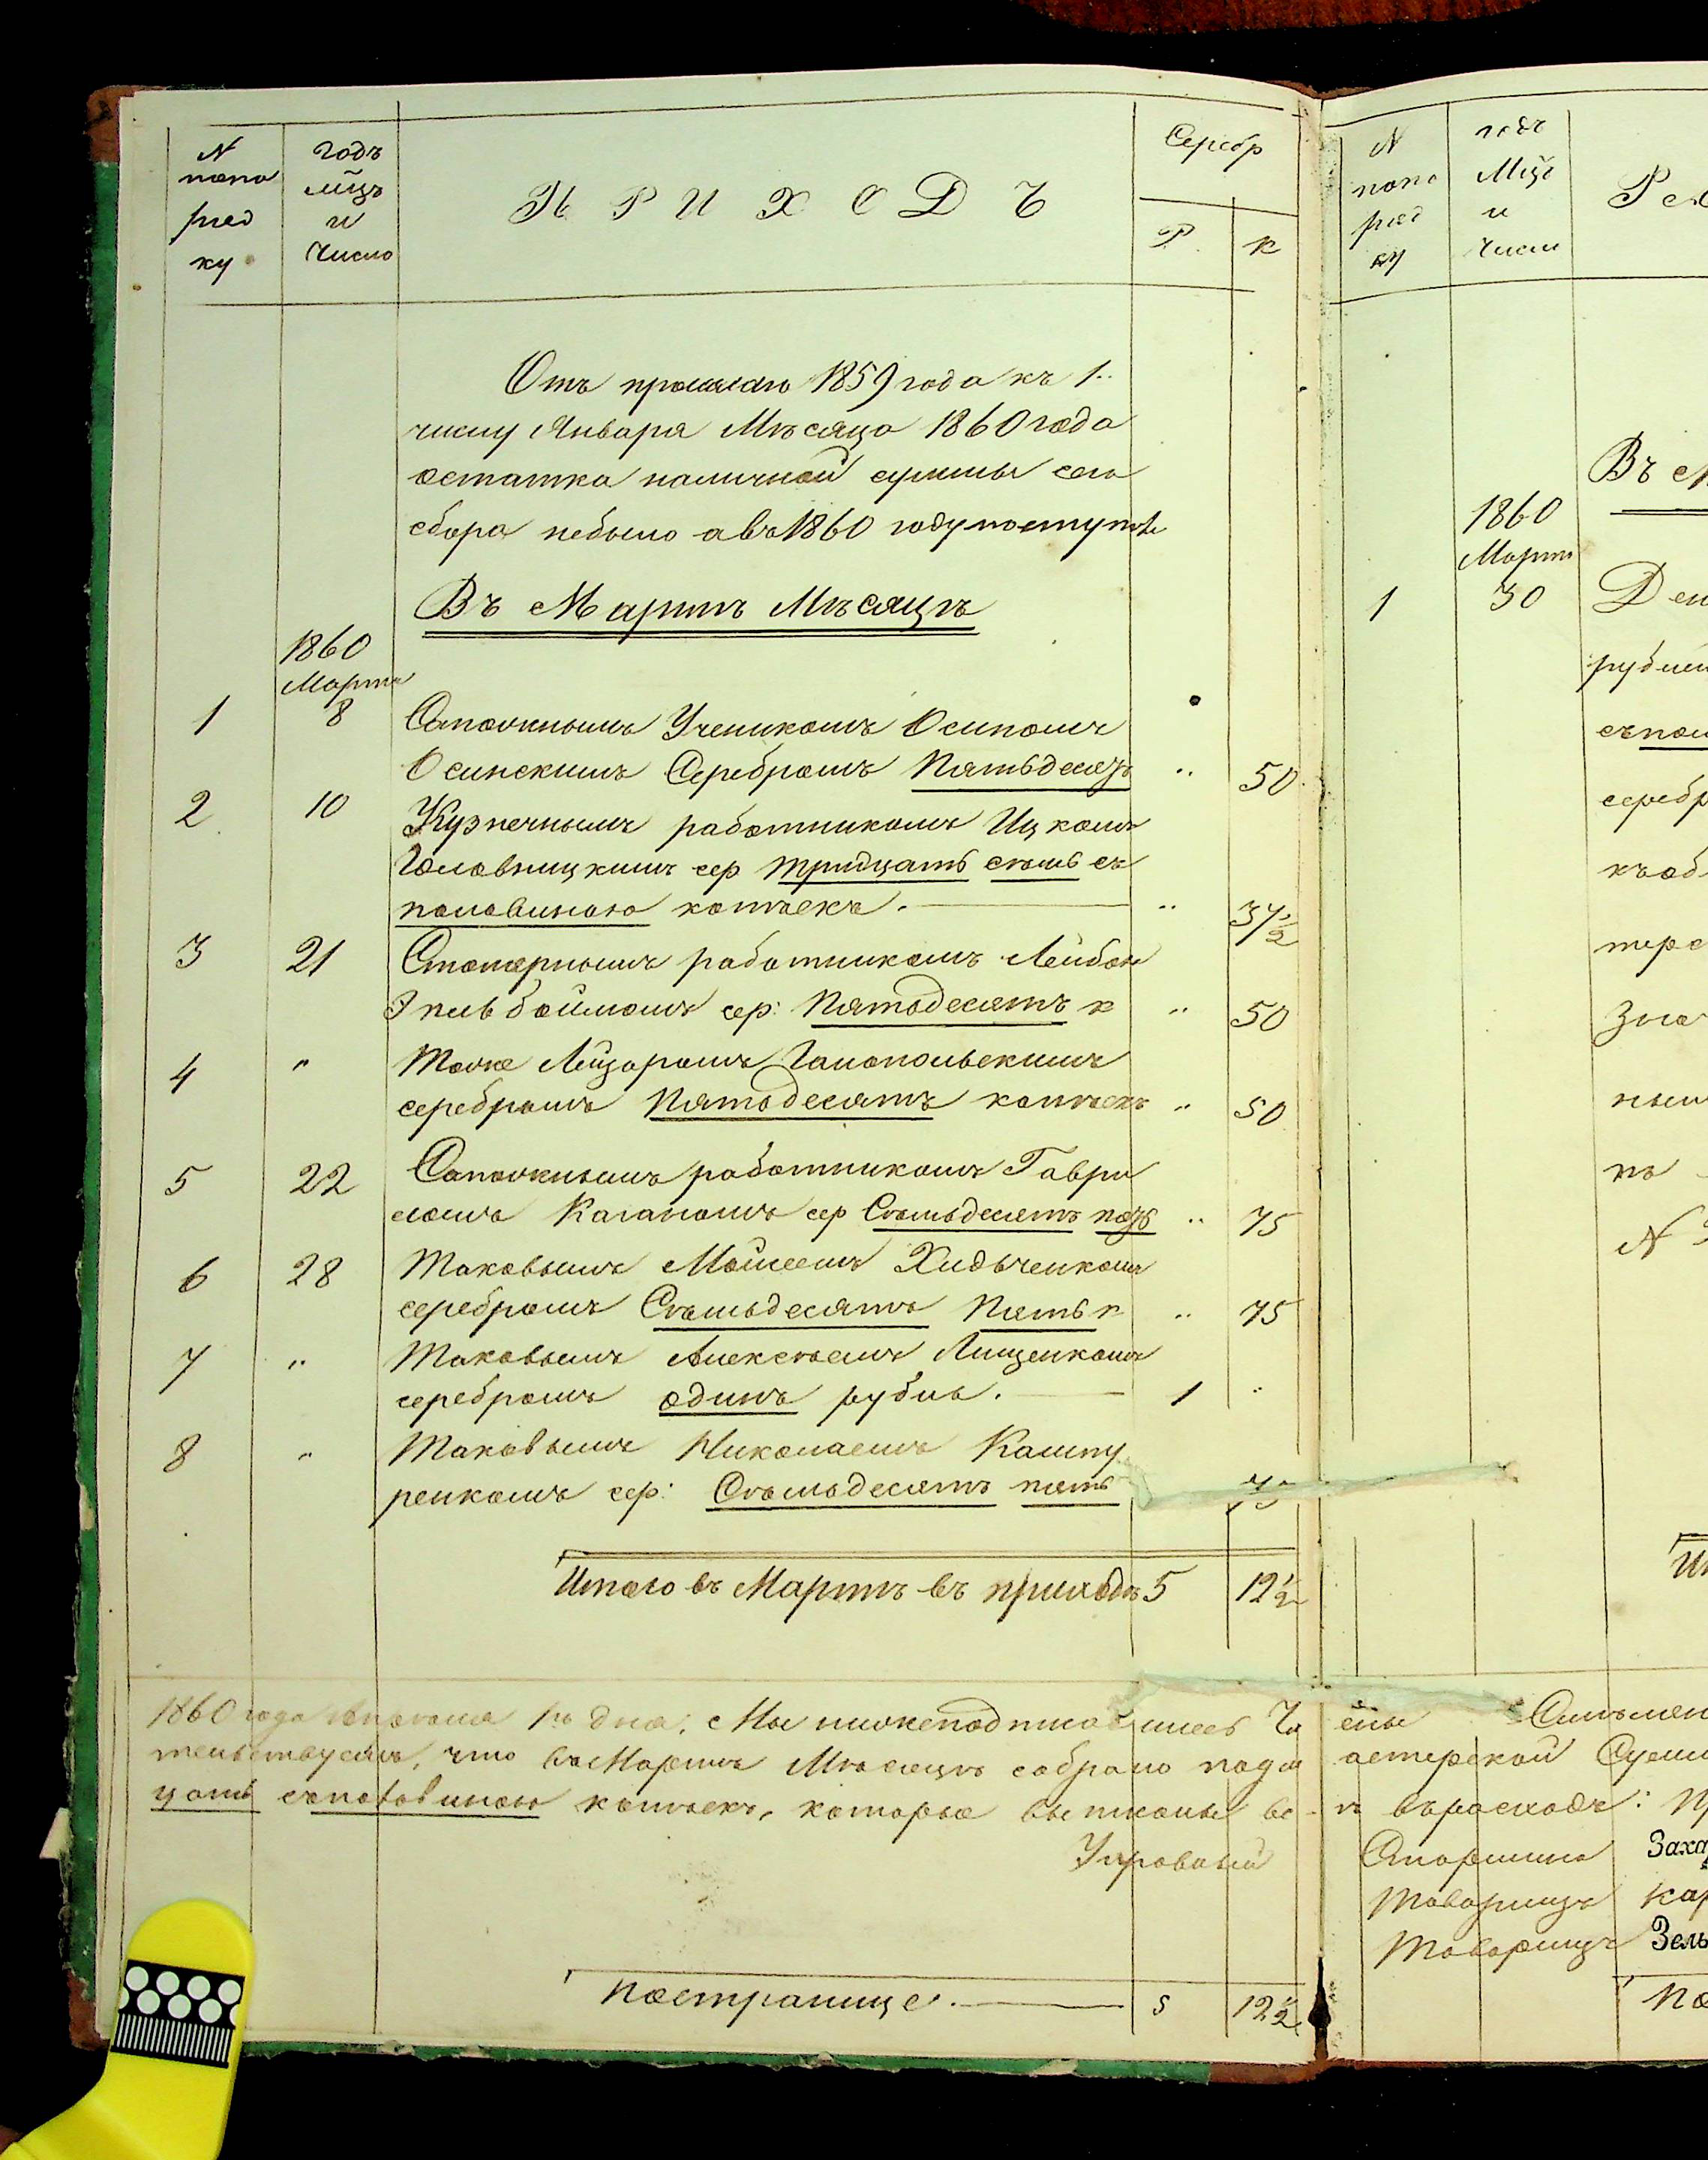 N
попо
ряд
ку
годъ
мц̃ъ
и
число
ПРИХОДЪ
Серебр
Р
к
Отъ прошлаго 1859 года къ 1
числу Января Мѣсяца 1860 года
остатка наличной суммы сего
сбора небыло а въ 1860 году поступило
Въ Мартѣ Мѣсяцѣ
1860
Марта
1 8 Сапожнымъ Ученикомъ Осипомъ
Осинскимъ Серебромъ Пятьдесятъ „ 50
2 10 Кузнечнымъ работникомъ Ицкомъ
Головницкимъ сер тридцать семь съ
половиною копѣекъ. „ 37½
3 21 Столярнымъ работникомъ Лейбою
сер: Пятьдесятъ к „ 50
4 „ Тоже Лейзаромъ Галопольскимъ
серебромъ Пятьдесятъ копѣекъ „ 50
5 22 Сапожнымъ работникомъ Гаври
ломъ Кагановъ сер Сѣмьдесятъ пять „ 75
6 28 Таковымъ Мойсеемъ Хидьченкомъ
серебромъ Сѣмьдесятъ Пять к „ 75
7 „ Таковымъ Алексѣемъ Лищенкомъ
серебромъ одинъ рубль. 1 „
8 „ Таковымъ Николаемъ Кашпу
ренкомъ сер: Сѣмьдесятъ пять 75
Итого въ Мартѣ въ приходѣ 5 12½
1860 года Апреля 1го дня; Мы нижеподписавшиеся
тельствуемъ, что въ Мартѣ Мѣсяцѣ собрано
цать съполовиною копѣекъ, которые
Управный
Пострание. 5 12½
N
попо
ряд
ку
годъ
Мц̃ъ
и
число
Рас
Въ М
1860
Марта
1 30 Ден
рублей
съпол
серебр
къоб
терс
зна
ным
N
Ит
астерской Сумм
въ расходъ: П
Старшина Заха
Товарищъ Кар
Товарищъ Зель
По